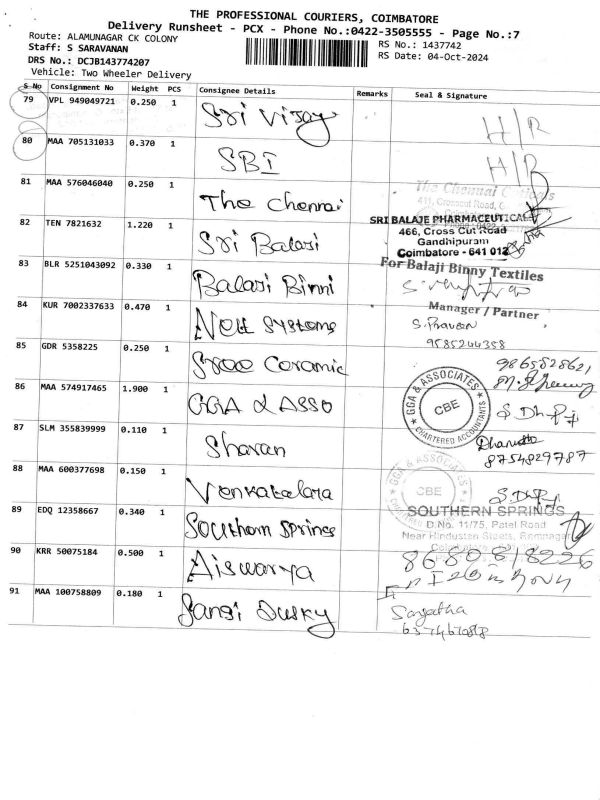 THE PROFESSIONAL COURIERS, COIMBATORE
Delivery Runsheet - PCX - Phone No.:0422-3505555 - Page No.:7
Route: ALAMUNAGAR CK COLONY
RS No.: 1437742
Staff: S SARAVANAN
RS Date: 04-Oct-2024
DRS No.: DCJB143774207
Vehicle: Two Wheeler Delivery
S No Consignment No Weight PCS Consignee Details Remarks Seal & Signature
79 VPL 949049721 0.250 1 Sri Vijay H/R
80 MAA 705131033 0.370 1 SBI H/R
81 MAA 576046040 0.250 1 The Chennai
The Chennai
82 TEN 7821632 1.220 1 Sri Balaji
SRI BALAJE PHARMACEUTICALS
466, Cross Cut Road
Gandhipuram
Coimbatore - 641 012
83 BLR 5251043092 0.330 1 Balaji Binni
For Balaji Binny Textiles
Manager / Partner
84 KUR 7002337633 0.470 1 Nett Systems
S. Praveen
9585244358
85 GDR 5358225 0.250 1 Sree Ceramic
9865528621
86 MAA 574917465 1.900 1 GGA & ASSO
GGA & ASSOCIATES
CBE
CHARTERED ACCOUNTANTS
87 SLM 355839999 0.110 1 Sharan
8754829787
88 MAA 600377698 0.150 1 Venkatalara
GGA & ASSOCIATES
CBE
89 EDQ 12358667 0.340 1 Southern Springs
SOUTHERN SPRINGS
D.No. 11/75, Patel Road
Near Hindustan Steels, Ramnagar
90 KRR 50075184 0.500 1 Aiswarya
8680818226
91 MAA 100758809 0.180 1 Sangi Dusky
Sangatha